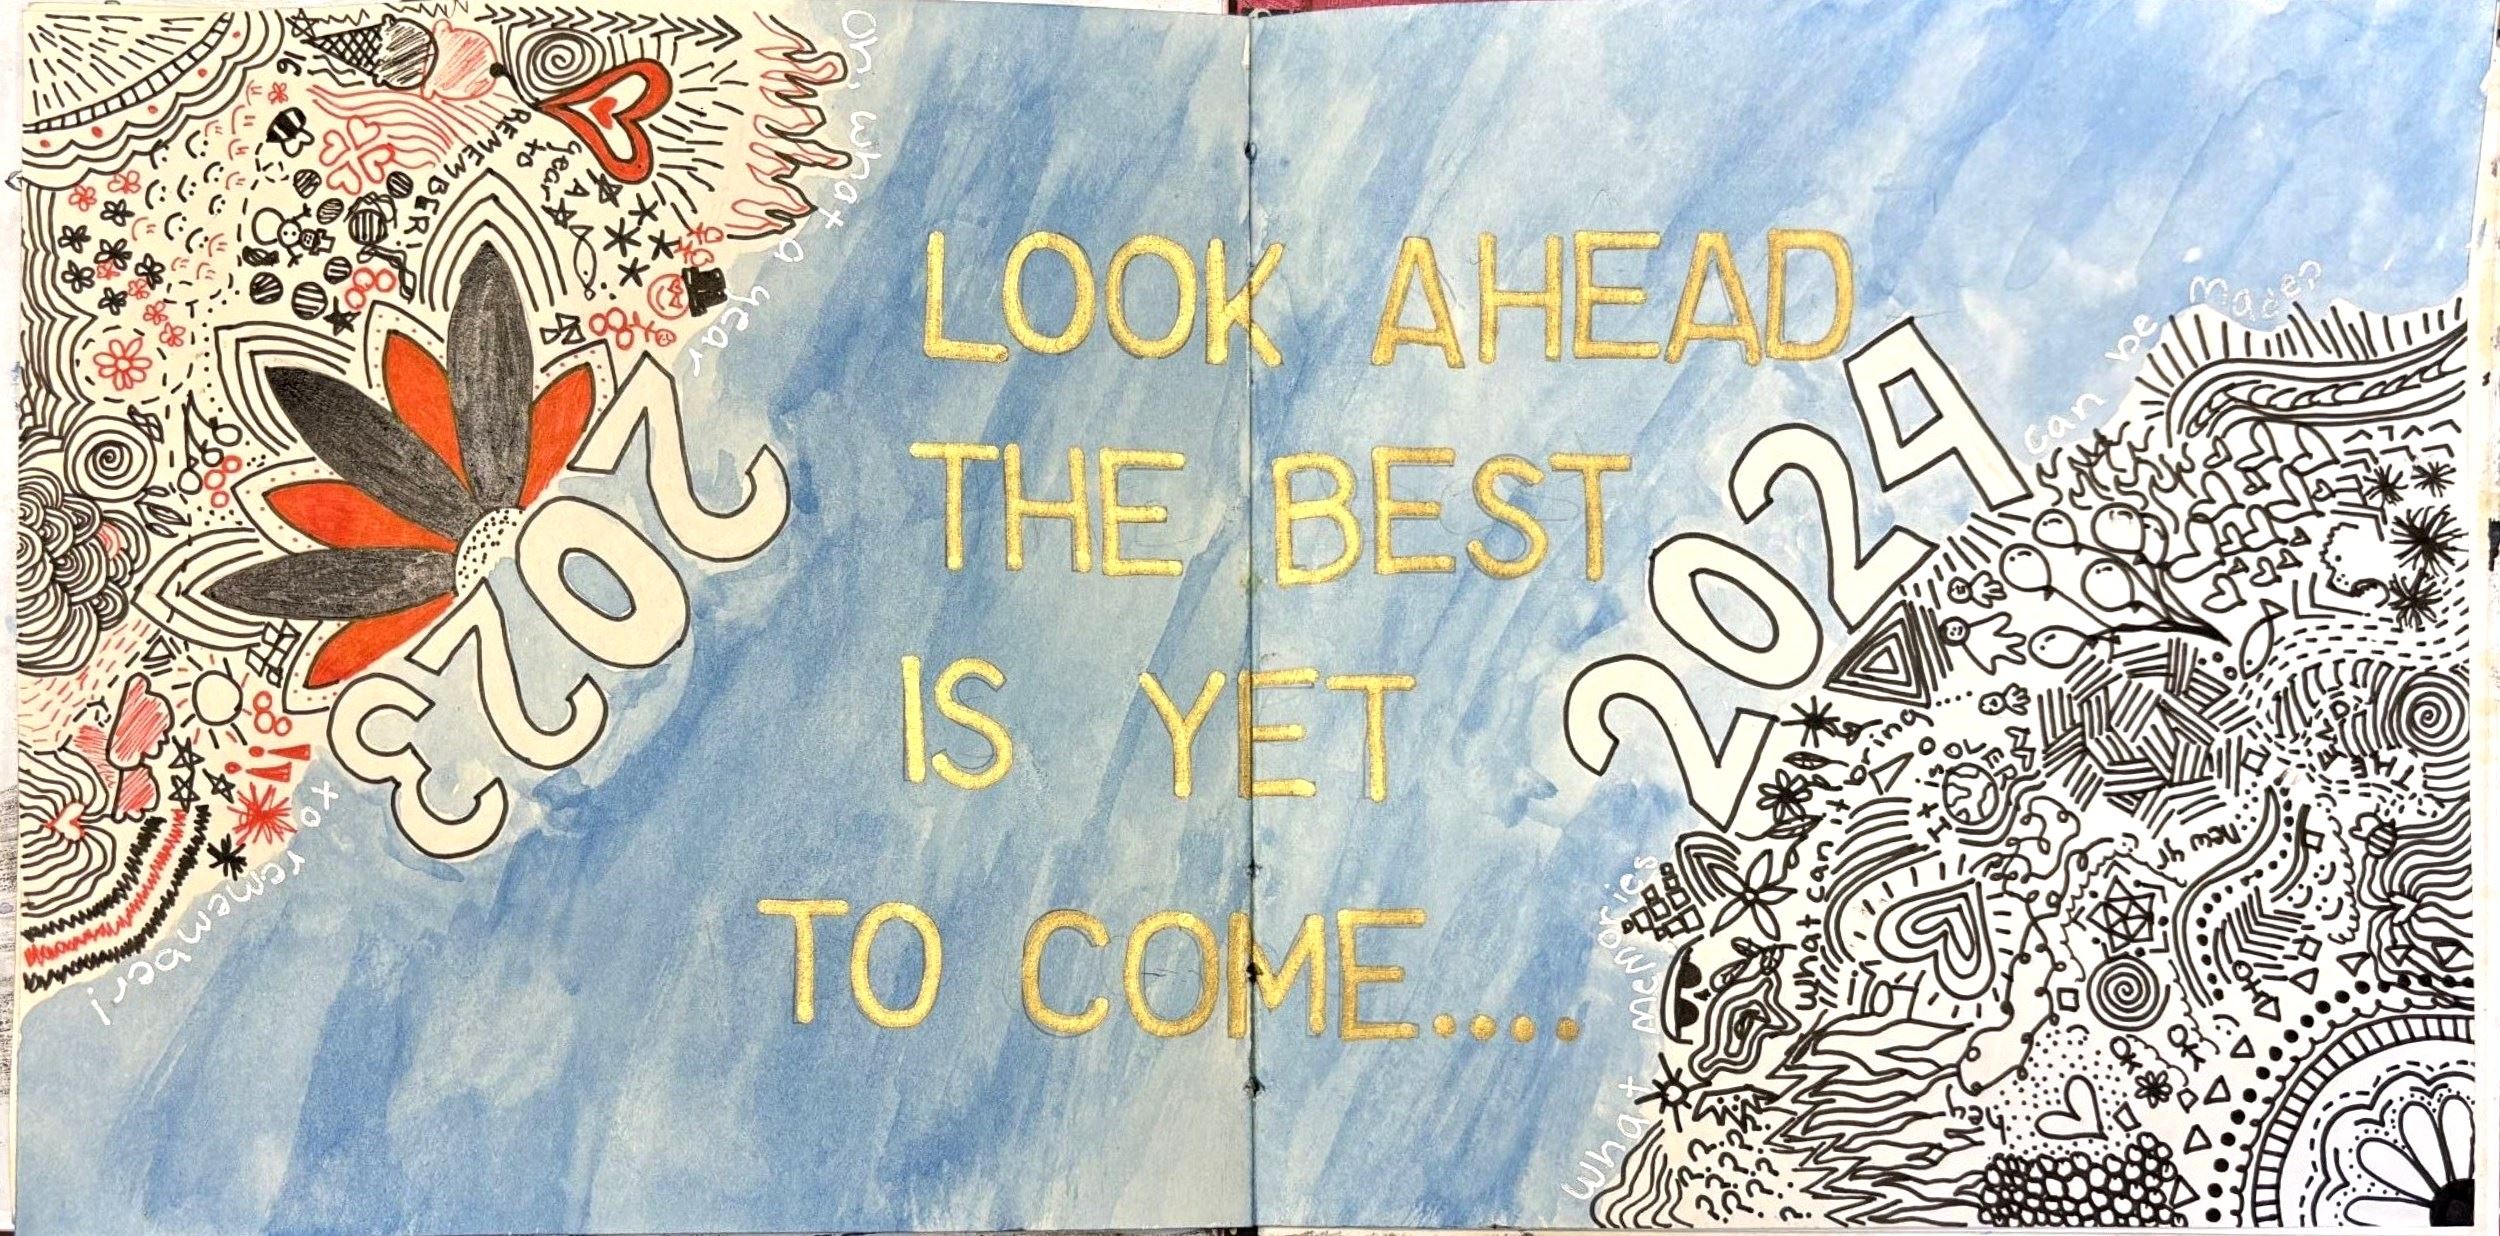 Oh, what a year
xo remember!
REMEMBER!
A
year
xo
2023
LOOK AHEAD
THE BEST
IS YET
TO COME....
2024
What memories
can be
Made?
What can it bring...
new yr
hy